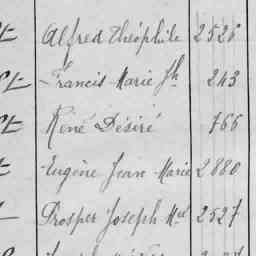 Alfred Théophile 2526
Francis Marie Jh 243
Réné Désiré 766
Eugène Jean Marie 2880
Prosper Joseph Mel 2527